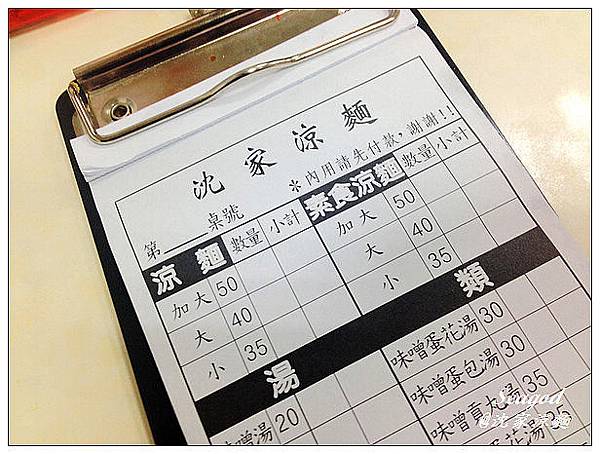 沈家涼麵
※內用請先付款，謝謝!!
第 桌號
涼麵 數量 小計 素食涼麵 數量 小計
加大 50 加大 50
大 40 大 40
小 35 小 35
湯 類
味噌湯 20 味噌蛋花湯 30
味噌蛋包湯 30
味噌貢丸湯 35
Seagod
@沈家涼麵